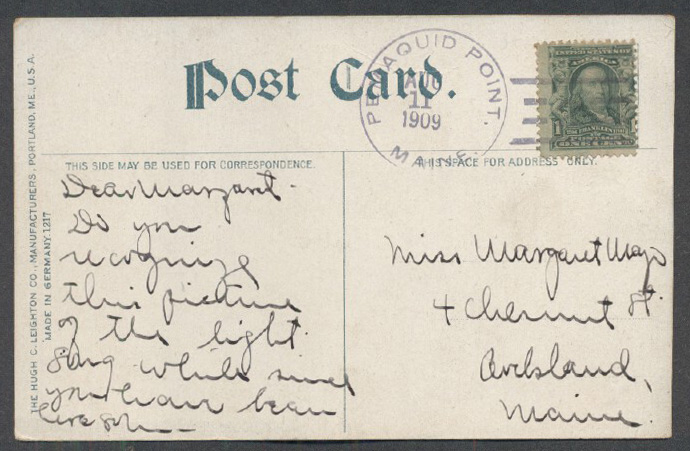 Post Card.
PEMAQUID POINT.
AUG
11
1909
MAINE.
UNITED STATES OF
AMERICA
1
FRANKLIN
ONE CENT
THIS SIDE MAY BE USED FOR CORRESPONDENCE.
THIS SPACE FOR ADDRESS ONLY.
THE HUGH C. LEIGHTON CO., MANUFACTURERS, PORTLAND, ME., U.S.A.
MADE IN GERMANY 1217
Dear Margaret.
Do you
recognize
this picture
of the light.
Long while since
you have been
here
Miss Margaret Mayo
4 Chesnut St.
Maine.